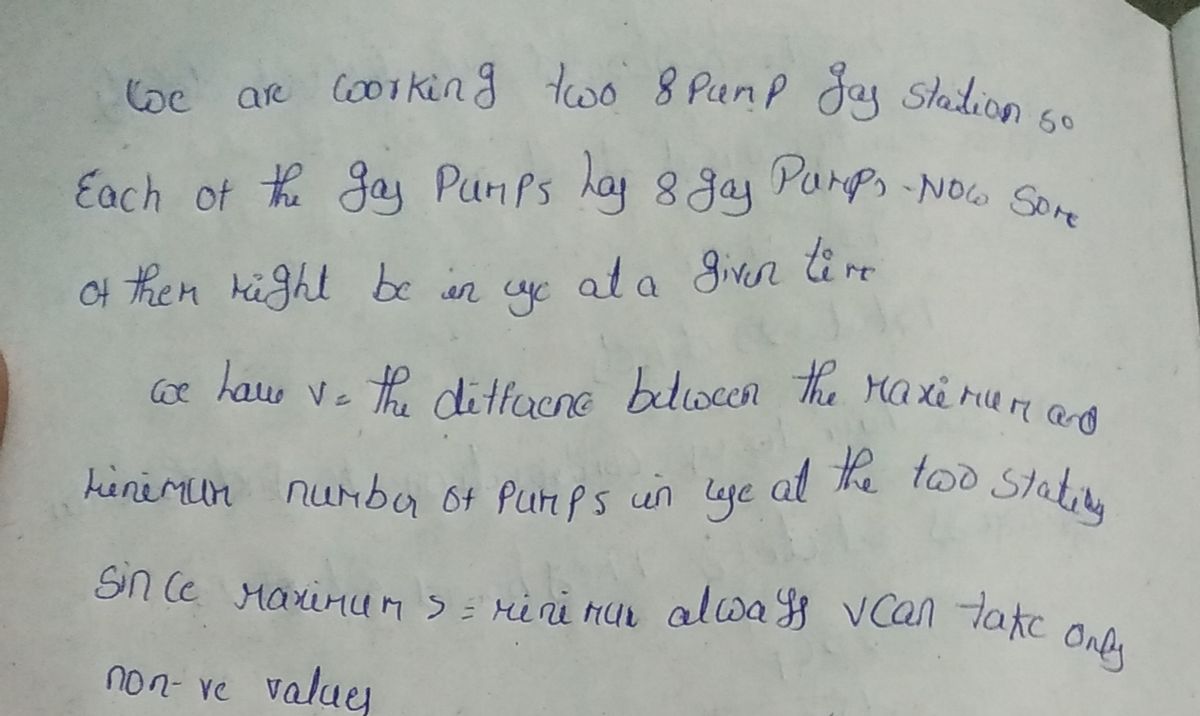 We are working two 8 Pump gas station so
Each of the gas Pumps has 8 gas Pumps - Now Some
of them might be in use at a given time
we have v = the difference between the Maximum and
Minimum number of Pumps in use at the two stations
Since Maximum >= minimum always v can take only
non-ve values